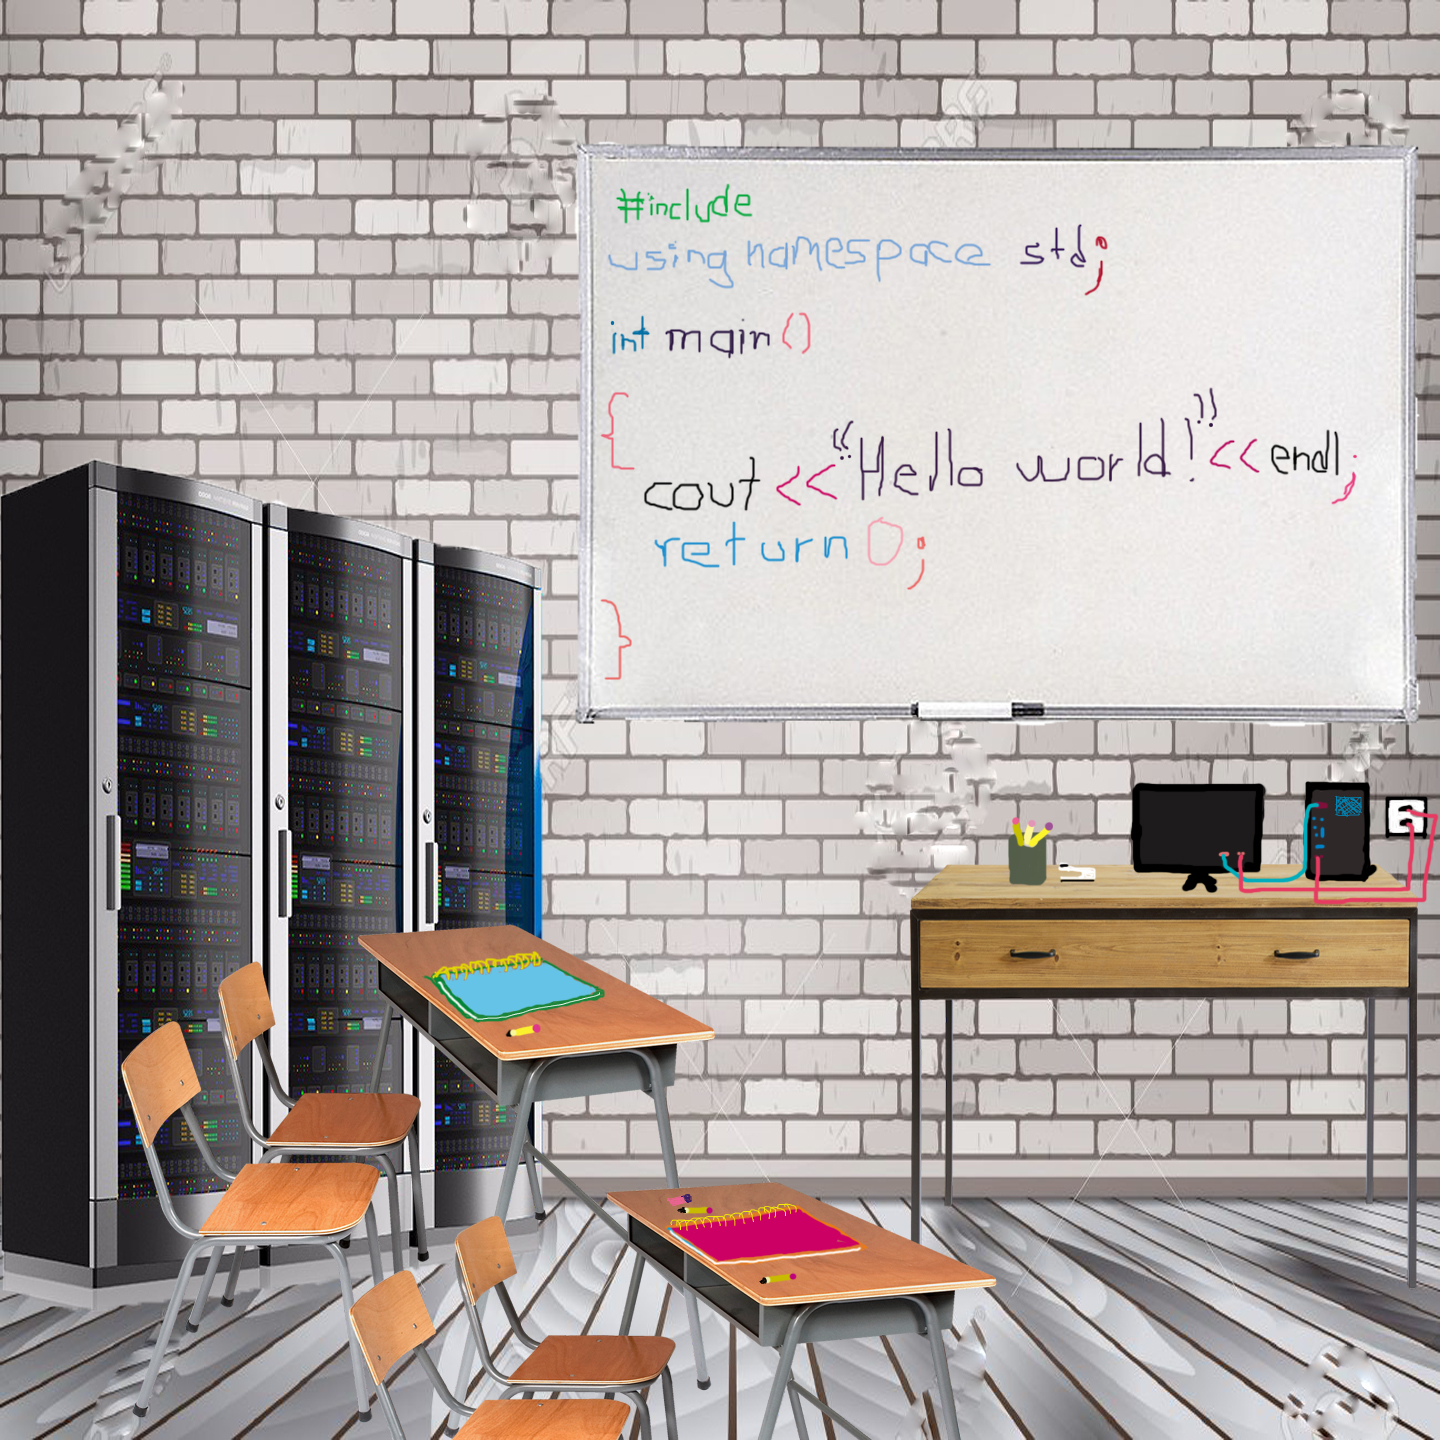 #include
using namespace std;
int main()
{
cout <<"Hello world!"<< endl;
return 0;
}